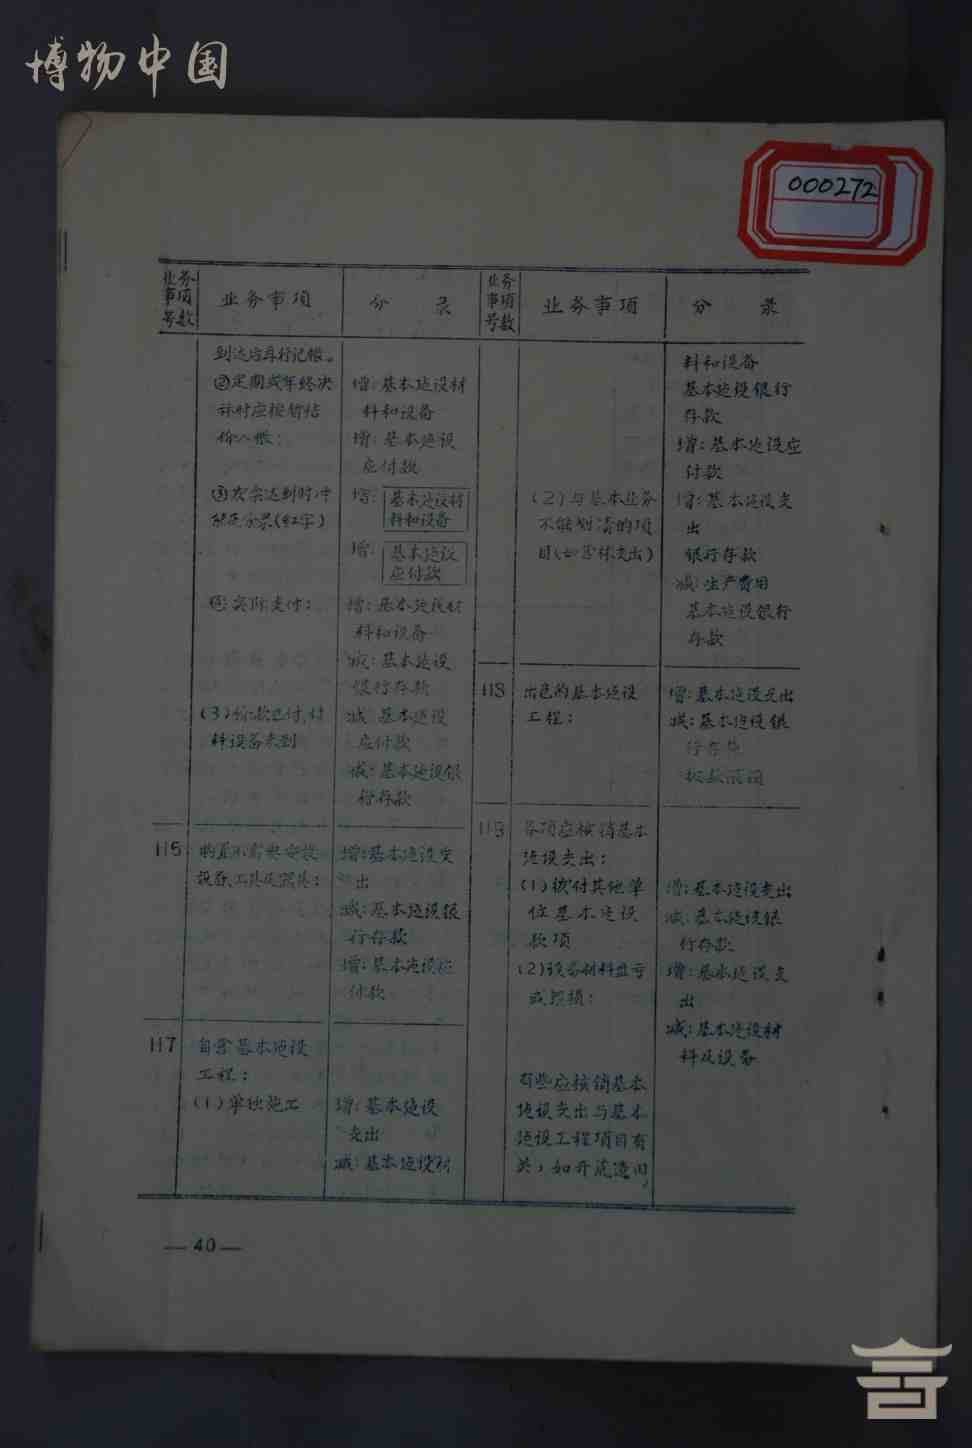 博物中国
000272
业务事项号数
业务事项
分 录
到达后再行记帐。
②定期或年终决
算时应按暂估
价入帐：
增：基本建设材
料和设备
增：基本建设
应付款
③次宗达到时冲
转原分录（红字）
增：基本建设材
料和设备
增：基本建设
应付款
④实际支付：
增：基本建设材
料和设备
减：基本建设
银行存款
(3)价款已付，材
料设备未到
减：基本建设
应付款
减：基本建设银
行存款
116
购置不需要安装
设备、工具及器具：
增：基本建设支
出
减：基本建设银
行存款
增：基本建设应
付款
117
自营基本建设
工程：
(1)单独施工
增：基本建设
支出
减：基本建设材
业务事项号数
业务事项
分 录
料和设备
基本建设银行
存款
增：基本建设应
付款
(2)与基本业务
不能划清的项
目（如营林支出）
增：基本建设支
出
银行存款
减：生产费用
基本建设银行
存款
118
出包的基本建设
工程：
增：基本建设支出
减：基本建设银
行存款
119
各项应核销基本
建设支出：
(1)拨付其他单
位基本建设
款项
增：基本建设支出
减：基本建设银
行存款
(2)设备材料盘亏
或毁损：
增：基本建设支
出
减：基本建设材
料及设备
有些应核销基本
建设支出与基本
建设工程项目有
关，如开荒造田，
—40—